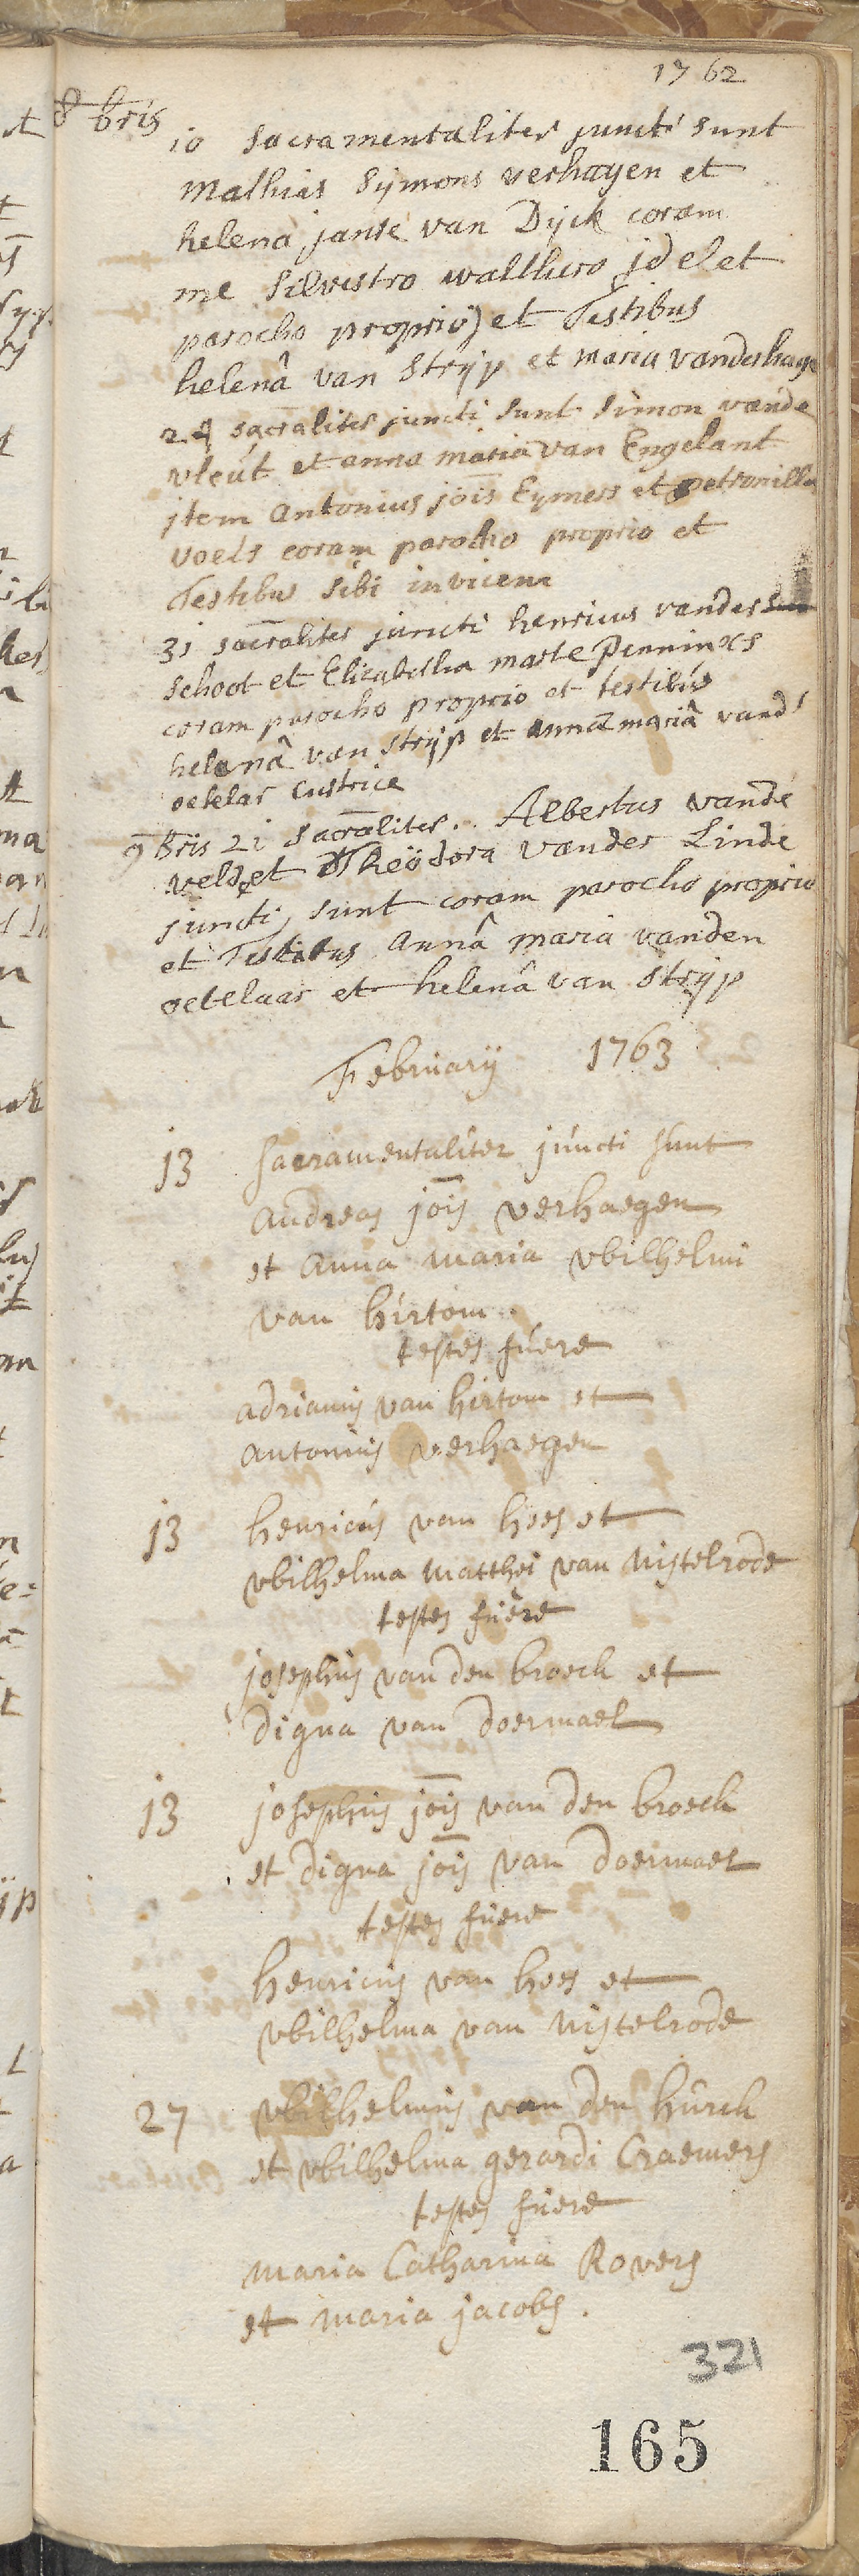 1762
8bris
10 sacramentaliter juncti sunt
Mathias Sijmons verhagen et
helena janse van Dijck coram
me Silvestro walthero jdelet
parocho proprio) et Testibus
helenâ van Strijp et maria vanderhage
24 sacraliter juncti sunt Simon vande
vleút et anna maria van Engelant
jtem Antonius jōis Eymers et petronilla
voets coram parocho proprio et
Testibus sibi invicem
31 sacrāliter juncti henricus vander
schoot et Elizabetha marte Penninxs
coram parocho proprio et testibús
helenâ van Strijp et annâ mariâ vand
oetelar Custrice
9bris 21 sacrāliter. Albertus vande
veld et Theödora vander Linde
juncti sunt coram parocho proprio
et Testibus Annâ maria vanden
oetelaar et helenâ van Strijp
Februarij 1763
13 sacramentaliter júncti súnt
Andreas jōis verhaegen
et Anna Maria Wilhelmi
van hirtom
testes fúere
adrianus van hirtom et
antonius verhaegen
13 henricús van hees et
Wilhelma Matthei van Nistelrode
testes fúere
josephus van den broeck et
digna van doermael
13 josephus jōis van den broeck
et digna jōis van doermael
testes fúere
henricus van hees et
Wilhelma van Nistelrode
27 Wilhelmus van den húrck
et Wilhelma gerardi Craemers
testes fúere
Maria Catharina Rovers
et Maria jacobs.
321
165